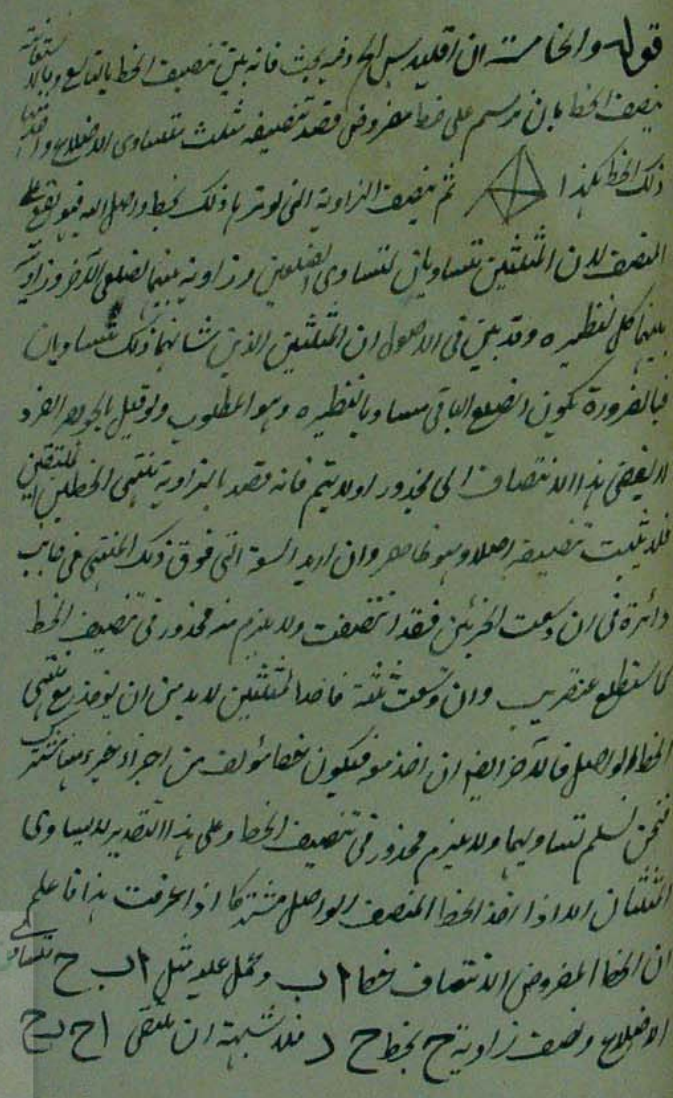 قوله والخامسة ان اقليدس الخ وفيه بحث فانه بين تنصيف الخط بالتاسع وبالا ستعانة
ينصف الخط بان يرسم على خط مفروض قصد تنصيفه مثلث متساوى الاضلاع واحد
ذلك الخط هكذا ثم ينصف الزاوية التى لوترها ذلك بخط واصل اليه فهو يقع على
المنصف لان المثلثين متساويان لتساوى الضلعين وزاوية بينهما لضلعى الآخر وزاوية
بينهما كل لنظيره وقد بين فى الاصول ان المثلثين الذين شانهما ذلك متساويان
فبالضرورة يكون الضلع الباقى مساويا لنظيره وهو المطلوب ولو قيل بالجوهر الفرد
لا يفضى هذا الانتصاف الى محذور اولا يتم فانه قصد بالزاوية منتهى الخطين الملتقيين
فلا يثبت تنصيفه اصلا وهو ظاهر وان اريد السعة التى فوق ذلك المنتهى فى جانب
دائرة فى ان وسعت الجزئين فقد انتصفت ولا يلزم منه محذور فى تنصيف الخط
كما ستطلع عنقريب وان وسعت ثلثة فاحد المثلثين لا بد من ان يوخذ مع منتهى
الخط الواصل فالآخر ايضا ان اخذ معه فيكون خطا مؤلف من اجزاء جزء منها مشترك
فنحن نسلم تساويهما ولا يلزم محذور فى تنصيف الخط وعلى هذا التقدير لا يساوى
المثلثان الا اذا اخذ الخط المنصف الواصل مشتركا اذا عرفت هذا فاعلم
ان الخط المفروض الانتصاف خط ا ب وعمل عليه مثلث ا ب ح متساوى
الاضلاع ونصف زاوية ح بخط ح د فلا شبهة ان ملتقى ا ح د ح